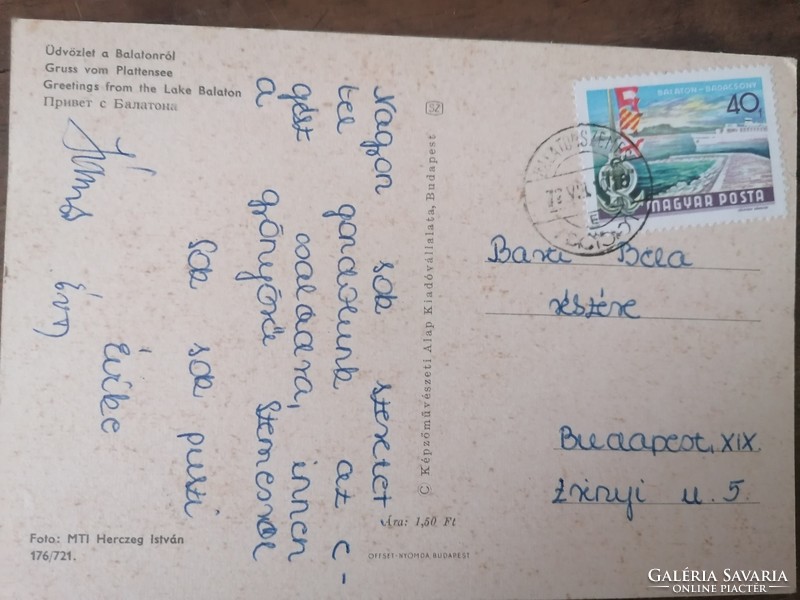 Üdvözlet a Balatonról
Gruss vom Plattensee
Greetings from the Lake Balaton
Привет с Балатона
Nagyon sok szeretet
tel gondolunk az e-
gész családra, innen
a gyönyörű Szemesről
Sok sok puszi
Évike
Évi
Foto: MTI Herczeg István
176/721.
Ára: 1,50 Ft
OFFSET-NYOMDA BUDAPEST
C Képzőművészeti Alap Kiadóvállalata, Budapest
BALATON - BADACSONY
40f
MAGYAR POSTA
BALATONSZEMES
Béla
részére
Budapest, XIX.
Zrinyi u. 5.
GALÉRIA SAVARIA
ONLINE PIACTÉR